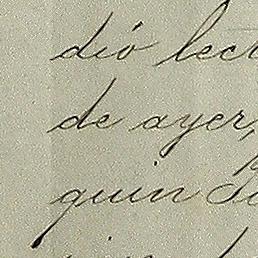 dió lect
de ayer,
quin